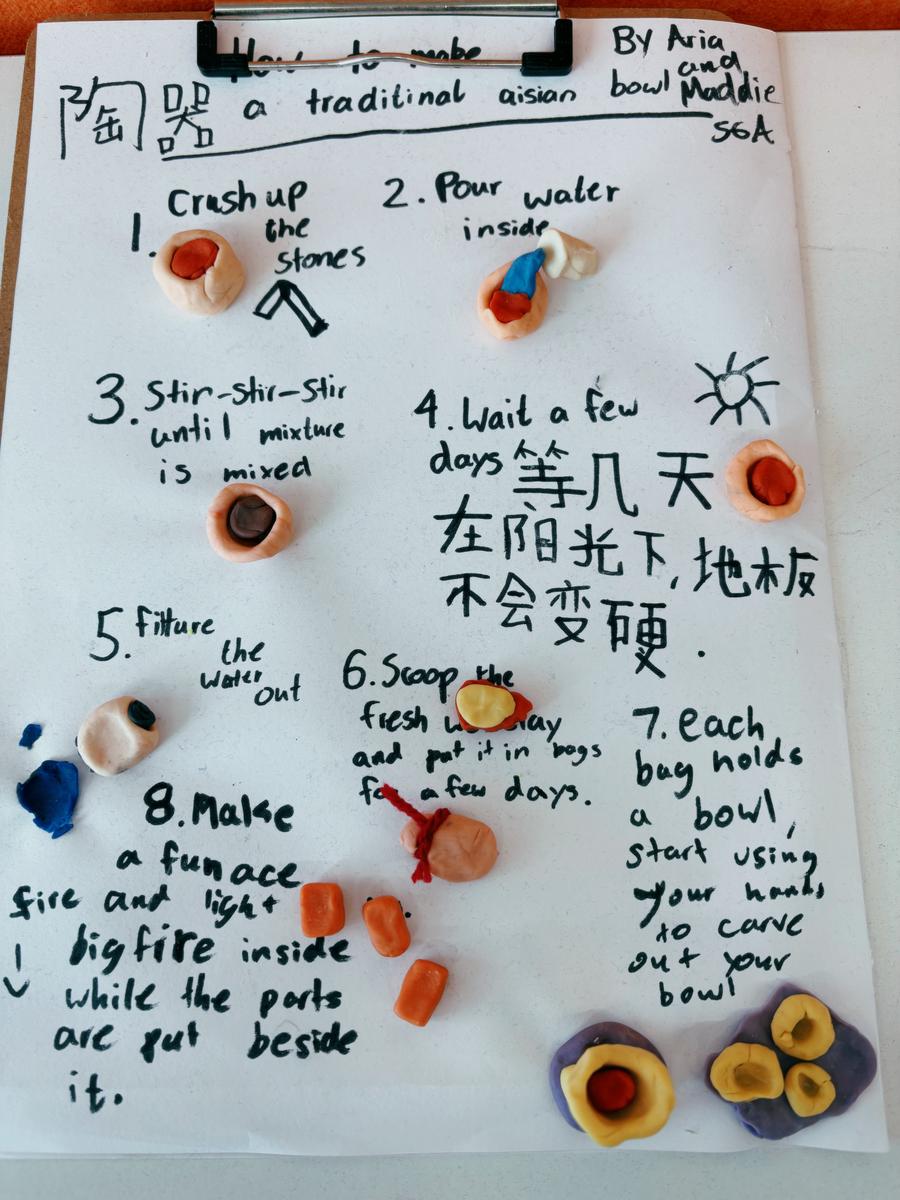 How to make
陶器 a traditinal aisian bowl
By Aria
and
Maddie
S6A
1. Crush up
the
stones
2. Pour water
inside
3. Stir-Stir-Stir
until mixture
is mixed
4. Wait a few
days 等几天
在阳光下,地板
不会变硬.
5. filture
the
water
out
6. Scoop the
fresh clay
and put it in bags
for a few days.
7. each
bag holds
a bowl,
start using
your hands
to carve
out your
bowl
8. Make
a funace
fire and light
big fire inside
while the parts
are put beside
it.